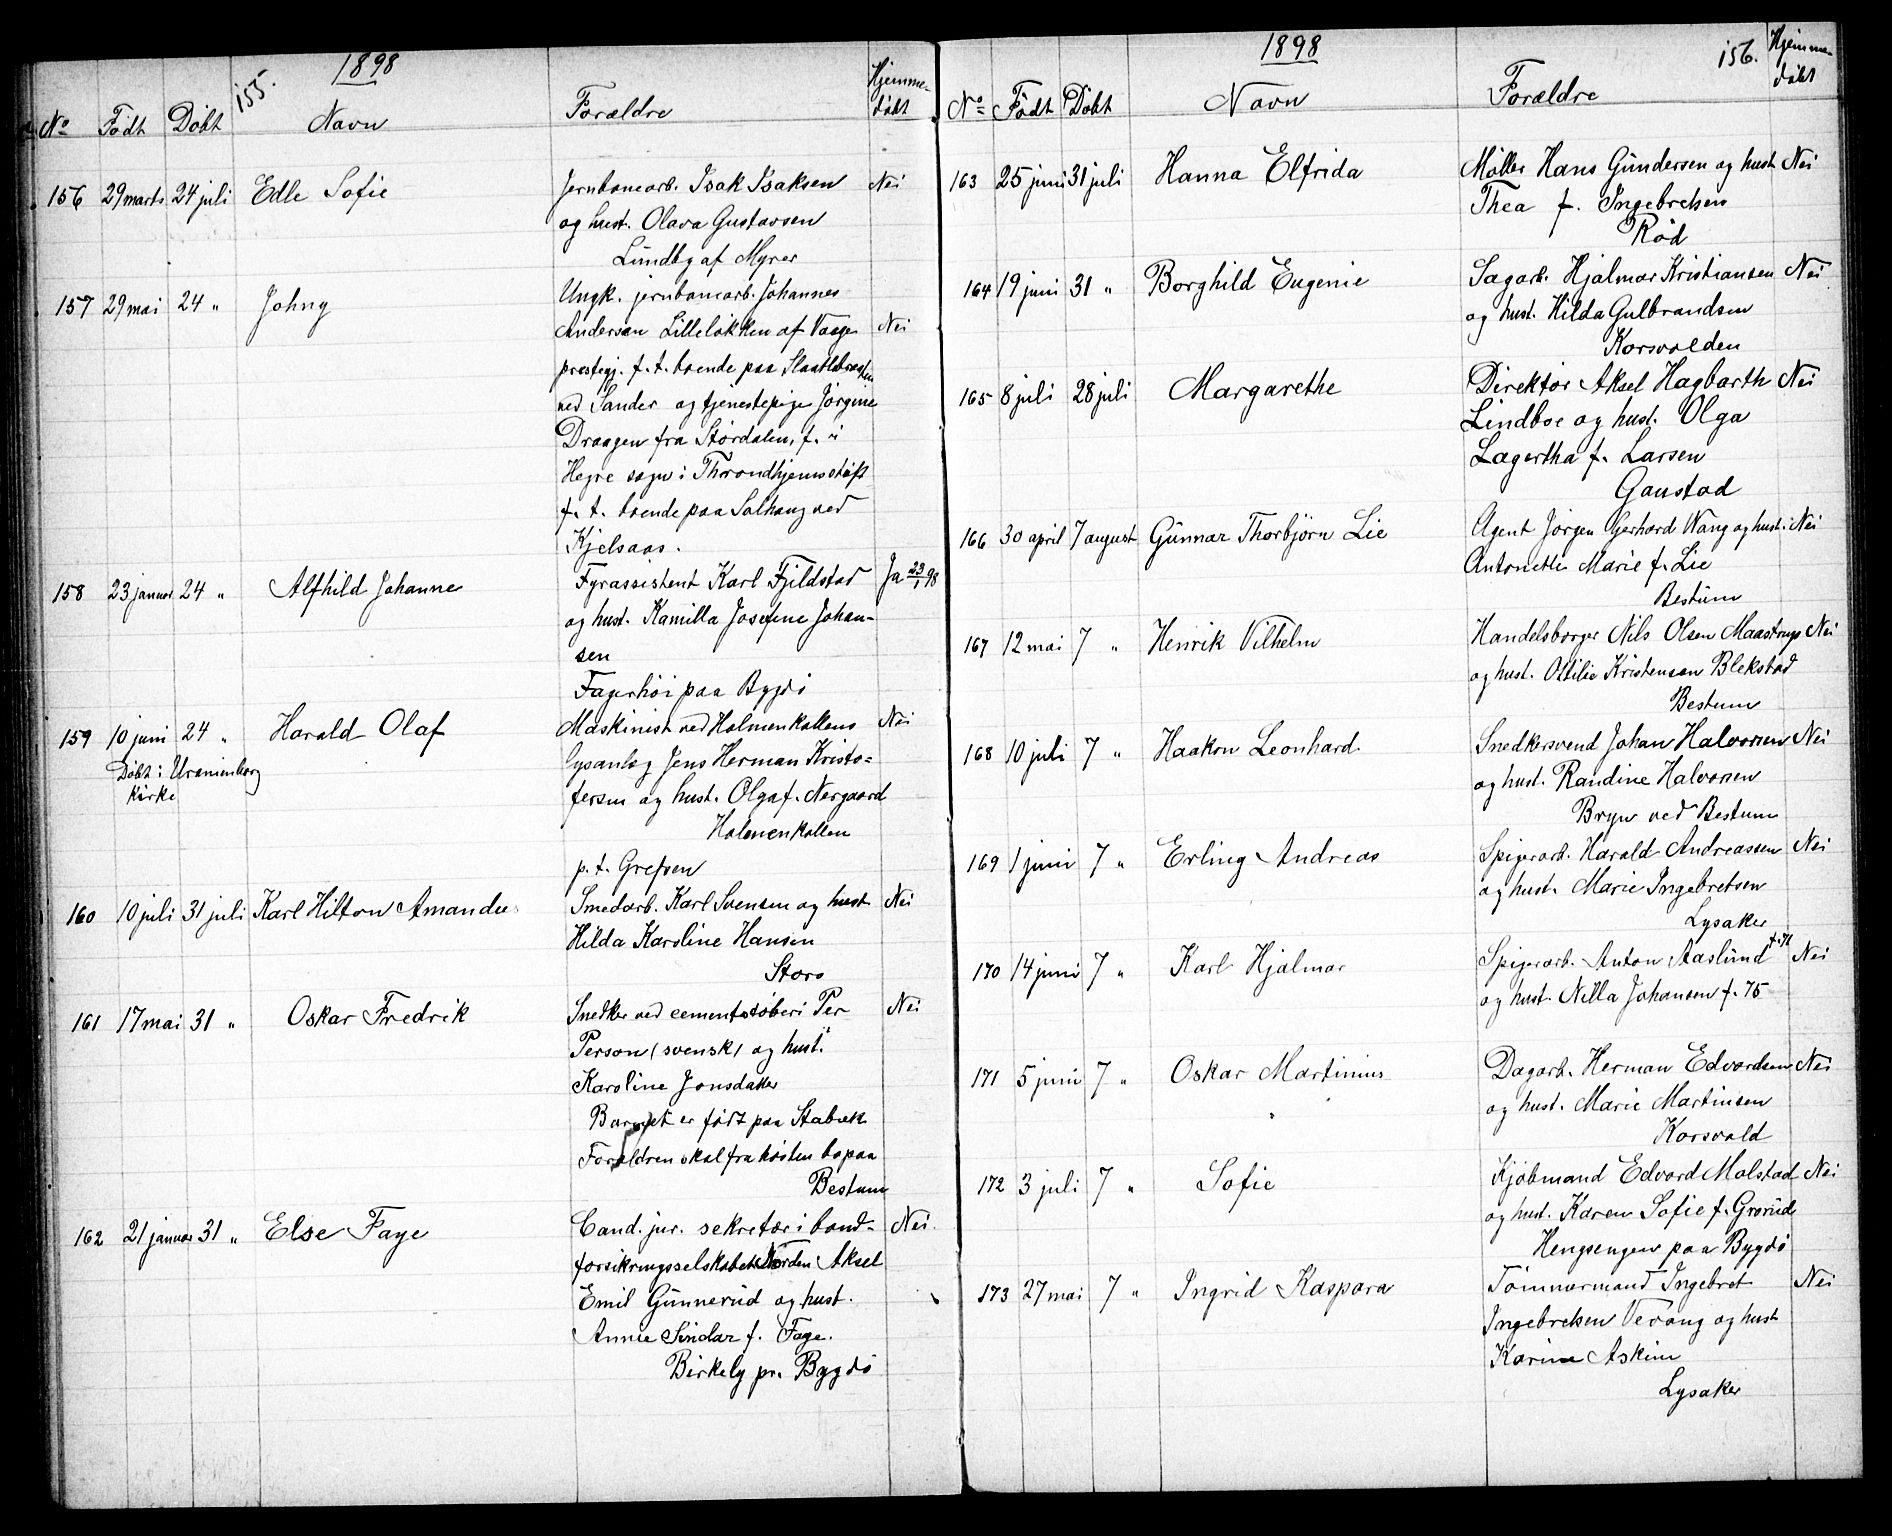 155.
1898
No Født Døbt Navn Forældre Hjemme-
døbt
156 29 marts 24 juli Edle Sofie Jernbanearb. Isak Isaksen Nei
og hust. Olava Gustavsen
Lundby af Myrer
157 29 mai 24 " Johny Ungk. jernbanearb. Johannes
Andersen Lilleløkken af Vaage Nei
prestegj. f. t. boende paa
ved Sander og tjenestepige Jørgine
Draagen fra Størdalen, f. i
Hegre sogn i Throndhjems stift
f. t. boende paa Solhaug ved
Kjelsaas.
158 23 januar 24 " Alfhild Johanne Fyrassistent Karl Fjeldstad Ja 23/1 98
og hust. Kamilla Josefine Johan-
sen
Fagerhøi paa Bygdø
159 10 juni 24 " Harald Olaf Maskinist ved Holmenkollens Nei
Døbt i Uranienborg
kirke
lysanlæg Jens Herman Kristo-
fersen og hust. Olga f. Nergaard
Holmenkollen
p. t. Grefsen
160 10 juli 31 juli Karl Hilton Amandus Smedarb. Karl Svensen og hust. Nei
Hilda Karoline Hansen
Storo
161 17 mai 31 " Oskar Fredrik Snedker ved cementstøberi Per Nei
Person (svensk) og hust.
Karoline Jonsdatter
Barnet er født paa Stabæk
Forældren skal fra høsten bo paa
Bestum
162 21 januar 31 " Else Faye Cand. jur. sekretær i band- Nei
forsikringsselskabet Norden Aksel
Emil Gunnerud og hust.
Annie Sindar f. Faye.
Birkely pr. Bygdø
1898
156.
No Født Døbt Navn Forældre Hjemme-
døbt
163 25 juni 31 juli Hanna Elfrida Møller Hans Gundersen og hust. Nei
Thea f. Ingebretsen
Rød
164 19 juni 31 " Borghild Eugenie Sagarb. Hjalmar Kristiansen Nei
og hust. Hilda Gulbrandsen
Korsvolden
165 8 juli 28 juli Margarethe Direktør Aksel Hagbarth Nei
Lindboe og hust. Olga
Lagertha f. Larsen
Gaustad
166 30 april 7 august Gunnar Thorbjørn Lie Agent Jørgen Gerhard Wang og hust. Nei
Antonette Marie f. Lie
Bestum
167 12 mai 7 " Henrik Vilhelm Handelsborger Nils Olsen Maastrup Nei
og hust. Ottilie Kristensen Blekstad
Bestum
168 10 juli 7 " Haakon Leonhard. Snedkersvend Johan Halvorsen Nei
og hust. Randine Halvorsen
Bryn ved Bestum
169 1 juni 7 " Erling Andreas Spigerarb. Harald Andreassen Nei
og hust. Marie Ingebretsen
Lysaker
170 14 juni 7 " Karl Hjalmar Spigerarb. Anton Aaslund f. 71 Nei
og hust. Nilla Johansen f. 75
171 5 juni 7 " Oskar Martinius Dagarb. Herman Edvardsen Nei
og hust. Marie Martinsen
Korsvold
172 3 juli 7 " Sofie Kjøbmand Edvard Molstad Nei
og hust. Karen Sofie f. Grorud
Hengsengen paa Bygdø
173 27 mai 7 " Ingrid Kaspara Tømmermand Ingebret Nei
Ingebretsen Verang og hust
Karine Askim
Lysaker